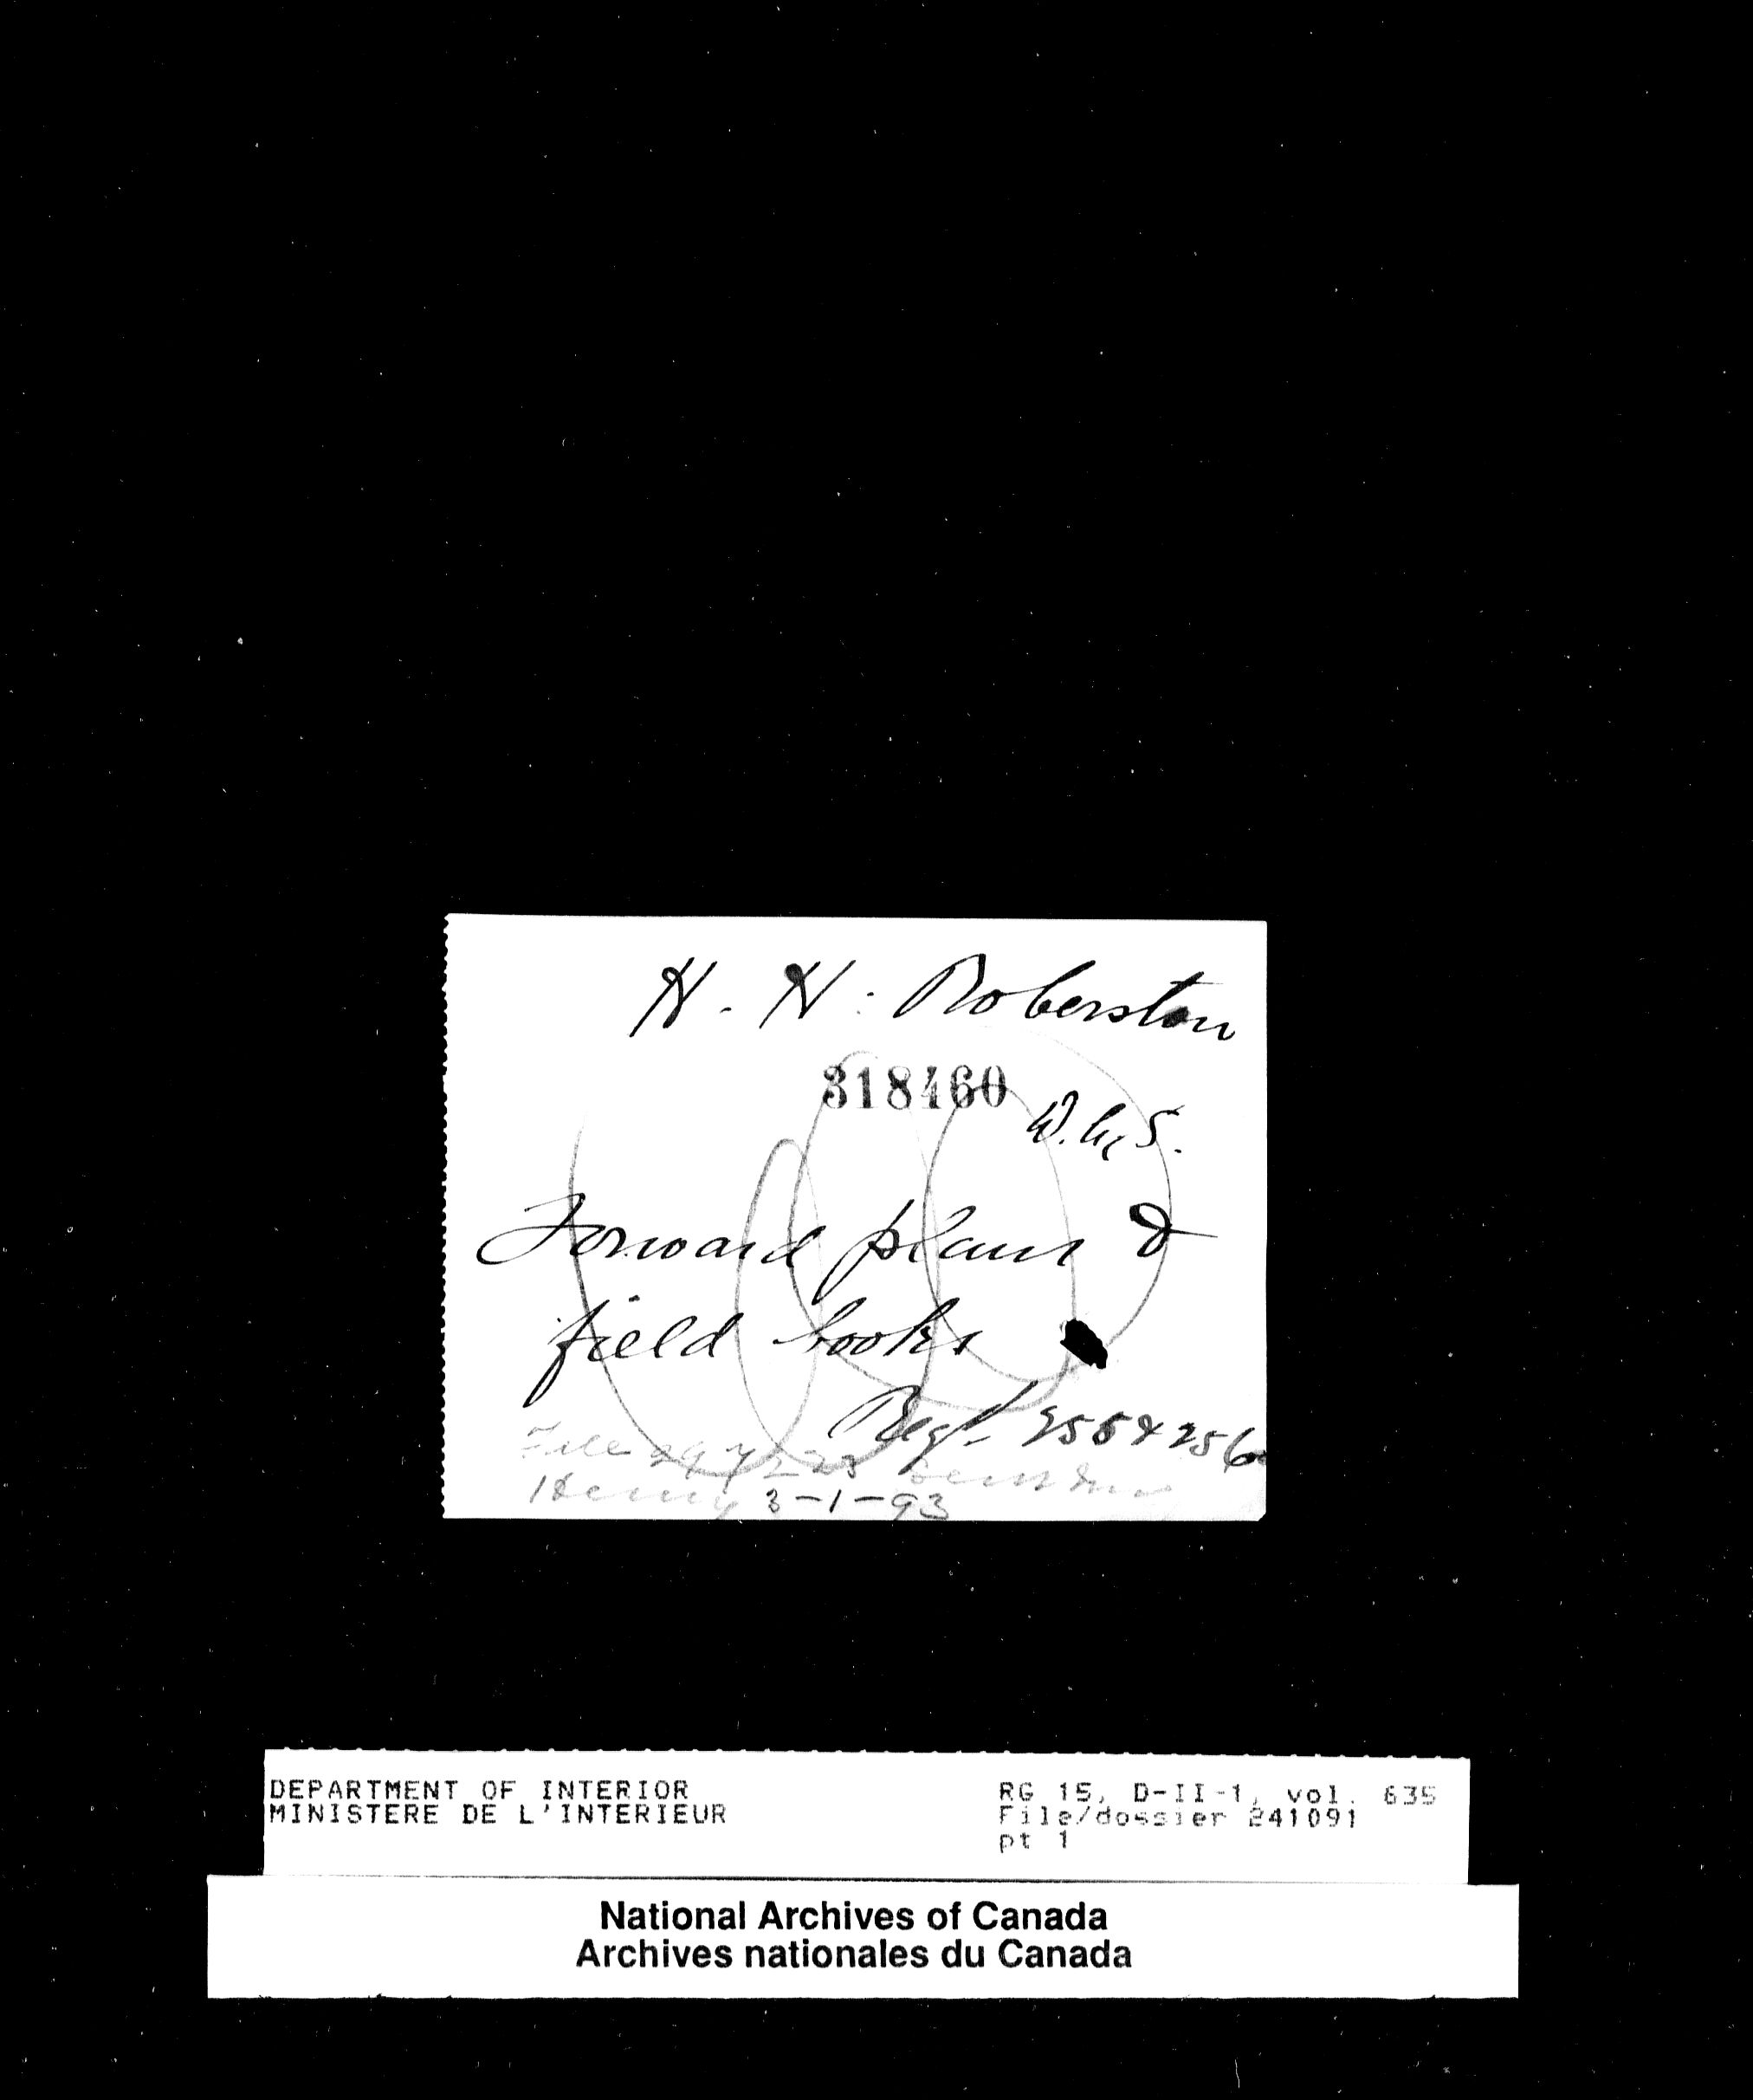 H. H. Roberston
318460
D.L.S.
Forward plans &
field books
Regr. 255 & 256
File 297225
Henry 3-1-93
DEPARTMENT OF INTERIOR
MINISTERE DE L'INTERIEUR
RG 15, D-II-1, vol. 635
File/dossier 241091
pt 1
National Archives of Canada
Archives nationales du Canada